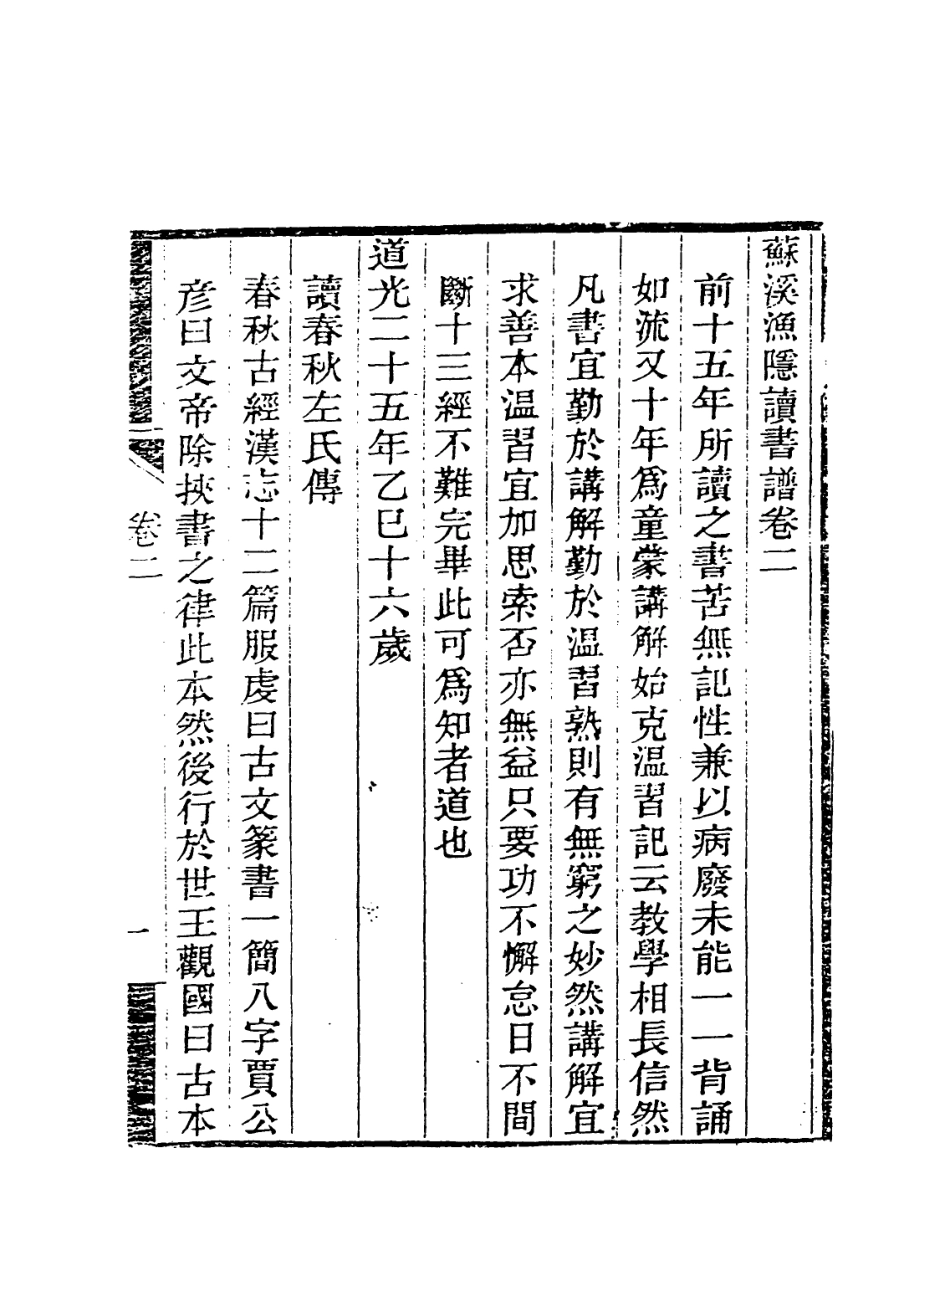 蘇溪漁隱讀書譜卷二
前十五年所讀之書苦無記性兼以病廢未能一一背誦
如流又十年爲童蒙講解始克温習記云教學相長信然
凡書宜勤於講解勤於温習熟則有無窮之妙然講解宜
求善本温習宜加思索否亦無益只要功不懈怠日不間
斷十三經不難完畢此可爲知者道也
道光二十五年乙巳十六歲
讀春秋左氏傳
春秋古經漢志十二篇服虔曰古文篆書一簡八字賈公
彦曰文帝除挾書之律此本然後行於世王觀國曰古本
卷二
一